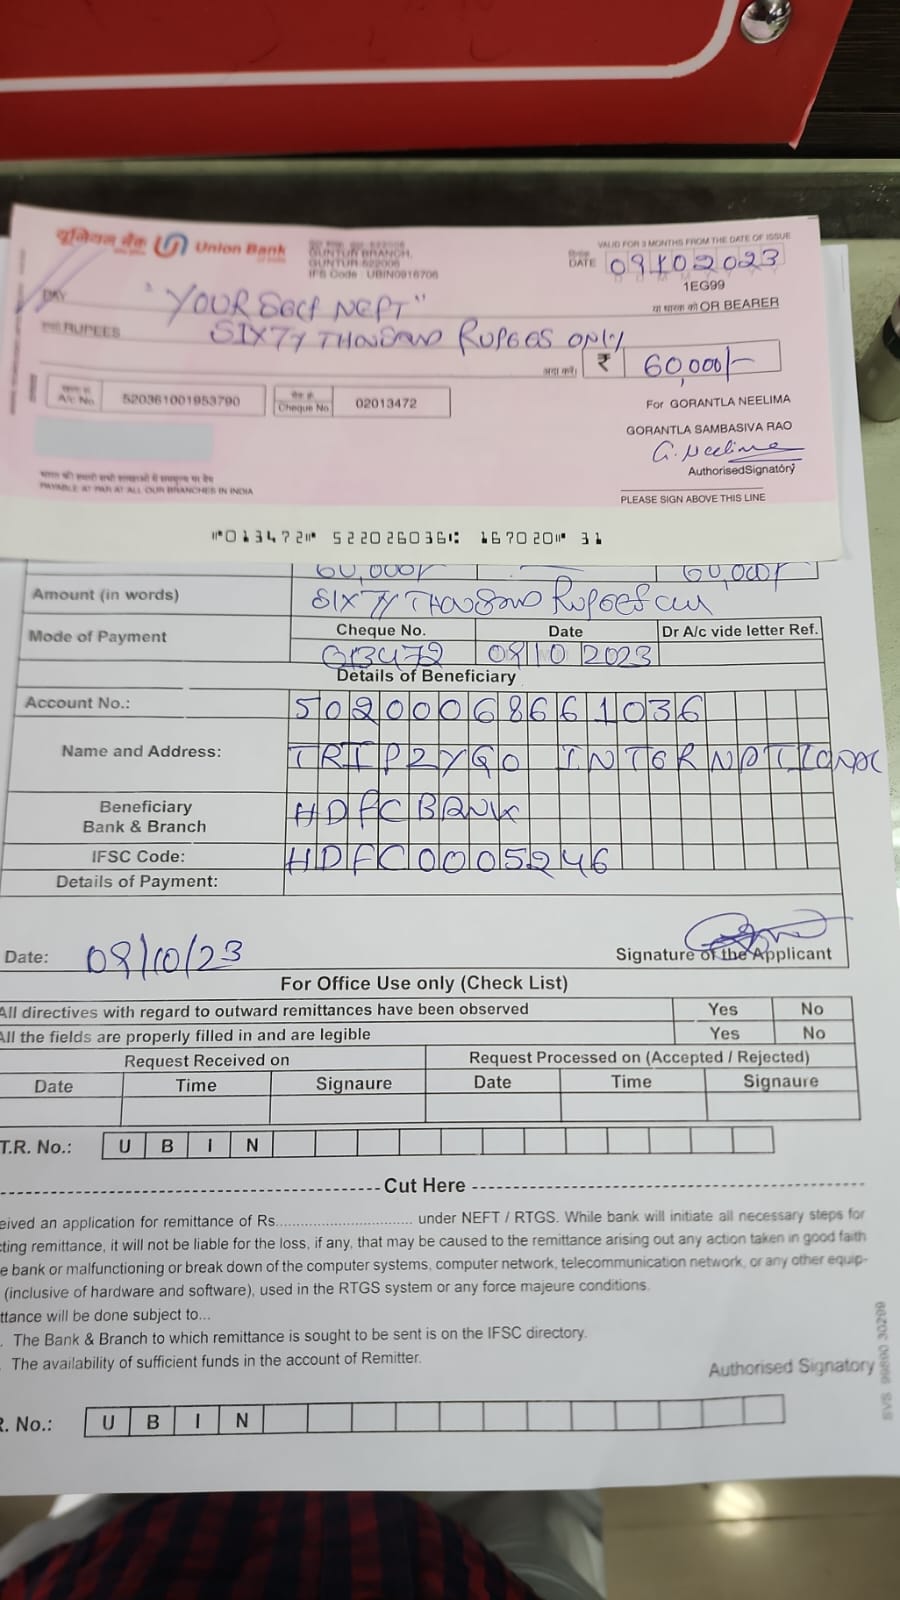 यूनियन बैंक Union Bank
GUNTUR BRANCH,
GUNTUR-522006
IFS Code : UBIN0916706
VALID FOR 3 MONTHS FROM THE DATE OF ISSUE
DATE 09102023
1EG99
PAY "YOUR SELF NEFT"
या धारक को OR BEARER
RUPEES SIXTY THOUSAND RUPEES ONLY
अदा करें ₹ 60,000/-
A/c No. 520361001953790
Cheque No. 02013472
For GORANTLA NEELIMA
GORANTLA SAMBASIVA RAO
G. Neelima
AuthorisedSignatory
PLEASE SIGN ABOVE THIS LINE
PAYABLE AT PAR AT ALL OUR BRANCHES IN INDIA
⑈013472⑈ 522026036⑆ 167020⑈ 31
60,000/- 60,000/-
Amount (in words) SIXTY THOUSAND RUPEES
Mode of Payment
Cheque No. Date Dr A/c vide letter Ref.
013472 09 10 2023
Details of Beneficiary
Account No.: 50200068661036
Name and Address: TRIP2YGO INTERNATIONAL
Beneficiary Bank & Branch HDFC BANK
IFSC Code: HDFC0005246
Details of Payment:
Date: 09/10/23
Signature of the Applicant
For Office Use only (Check List)
All directives with regard to outward remittances have been observed Yes No
All the fields are properly filled in and are legible Yes No
Request Received on Request Processed on (Accepted / Rejected)
Date Time Signaure Date Time Signaure
T.R. No.: U B I N
Cut Here
eived an application for remittance of Rs. under NEFT / RTGS. While bank will initiate all necessary steps for
cting remittance, it will not be liable for the loss, if any, that may be caused to the remittance arising out any action taken in good faith
e bank or malfunctioning or break down of the computer systems, computer network, telecommunication network, or any other equip-
(inclusive of hardware and software), used in the RTGS system or any force majeure conditions.
ttance will be done subject to...
. The Bank & Branch to which remittance is sought to be sent is on the IFSC directory.
. The availability of sufficient funds in the account of Remitter.
Authorised Signatory
SVS 99890 30299
R. No.: U B I N